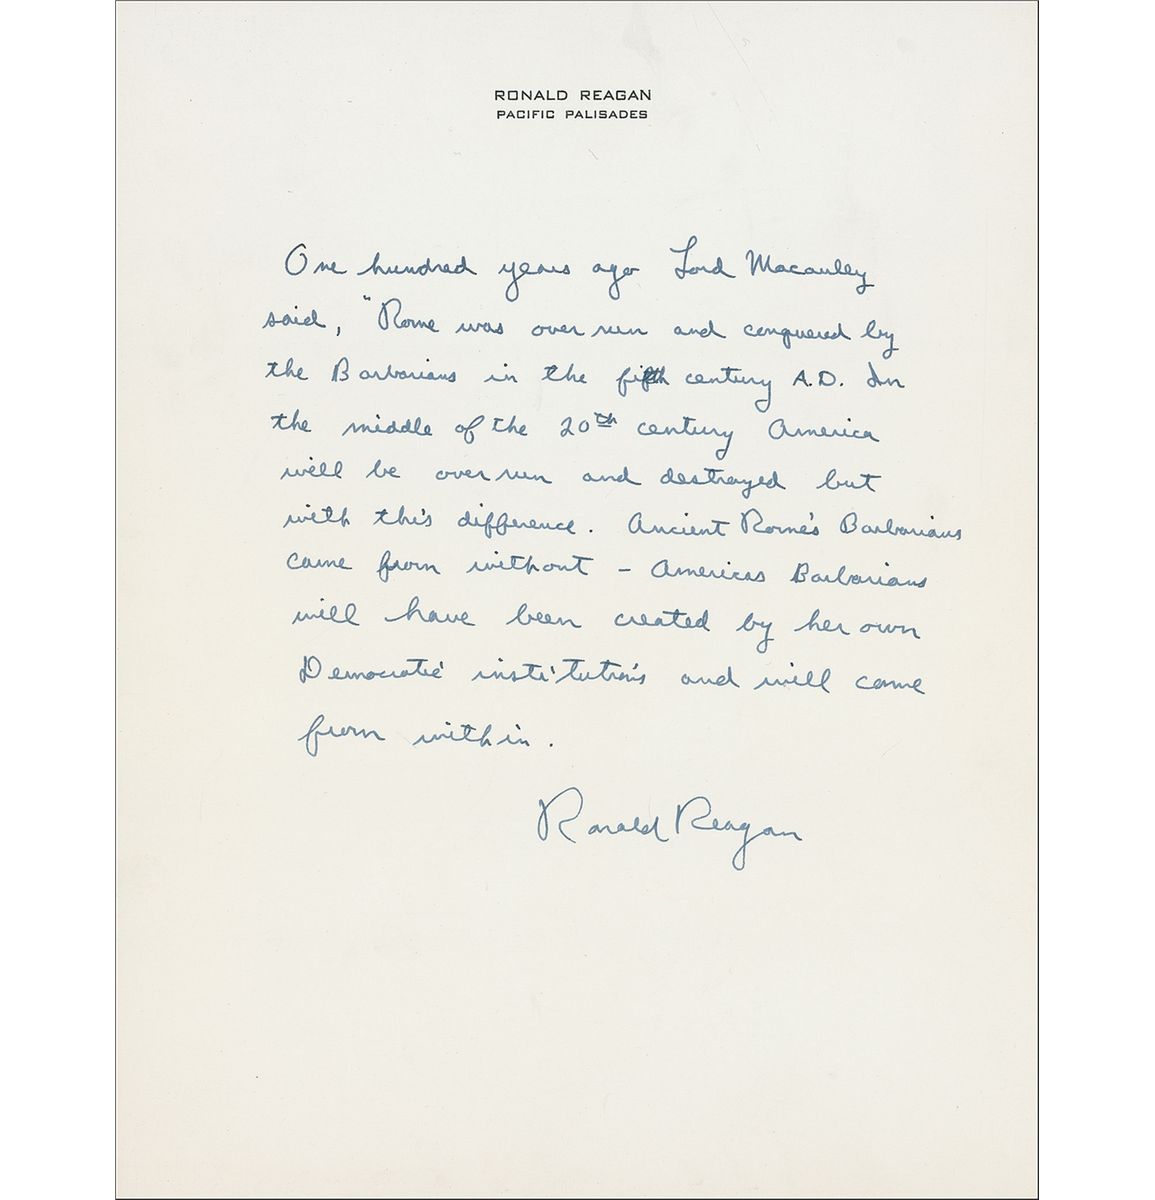 RONALD REAGAN
PACIFIC PALISADES
One hundred years ago Lord Macauley
said, "Rome was over run and conquered by
the Barbarians in the fifth century A.D. In
the middle of the 20th century America
will be over run and destroyed but
with this difference. Ancient Rome's Barbarians
came from without - Americas Barbarians
will have been created by her own
Democratic institutions and will come
from within.
Ronald Reagan